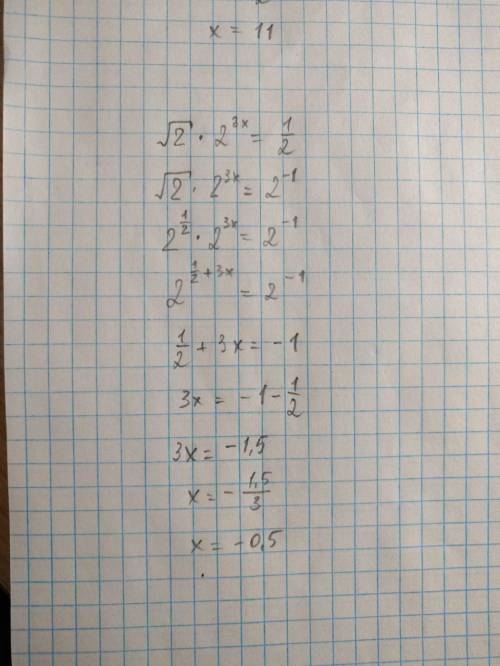 x = 11
√2 · 2^{3x} = \frac{1}{2}
√2 · 2^{3x} = 2^{-1}
2^{\frac{1}{2}} · 2^{3x} = 2^{-1}
2^{\frac{1}{2} + 3x} = 2^{-1}
\frac{1}{2} + 3x = -1
3x = -1 - \frac{1}{2}
3x = -1,5
x = -\frac{1,5}{3}
x = -0,5